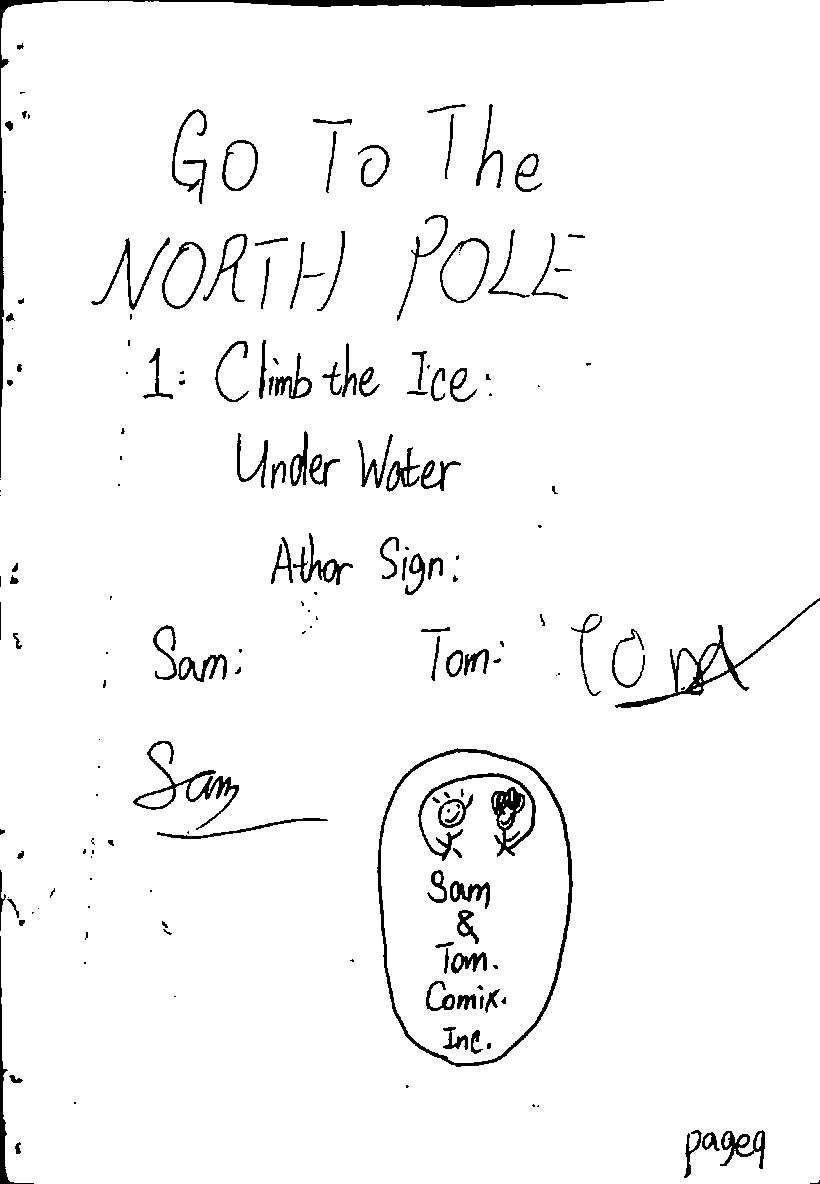 Go To The
NORTH POLE
1: Climb the Ice:
Under Water
Athor Sign:
Sam: Tom: Tom
Sam
Sam
&
Tom.
Comix.
Inc.
page9